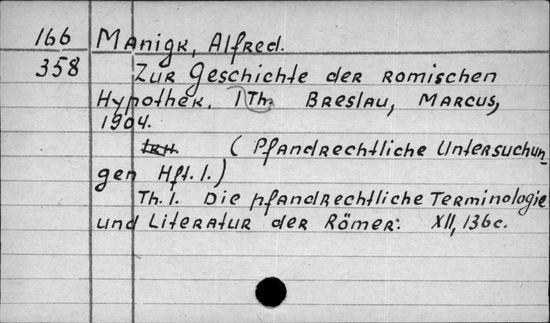 166 Manigk, Alfred.
358 Zur Geschichte der romischen
Hypothek. I Th. Breslau, Marcus,
1904.
(Pfandrechtliche Untersuchun
gen Hft. 1.)
Th. 1. Die pfandrechtliche Terminologie
und Literatur der Römer. XII, 136c.